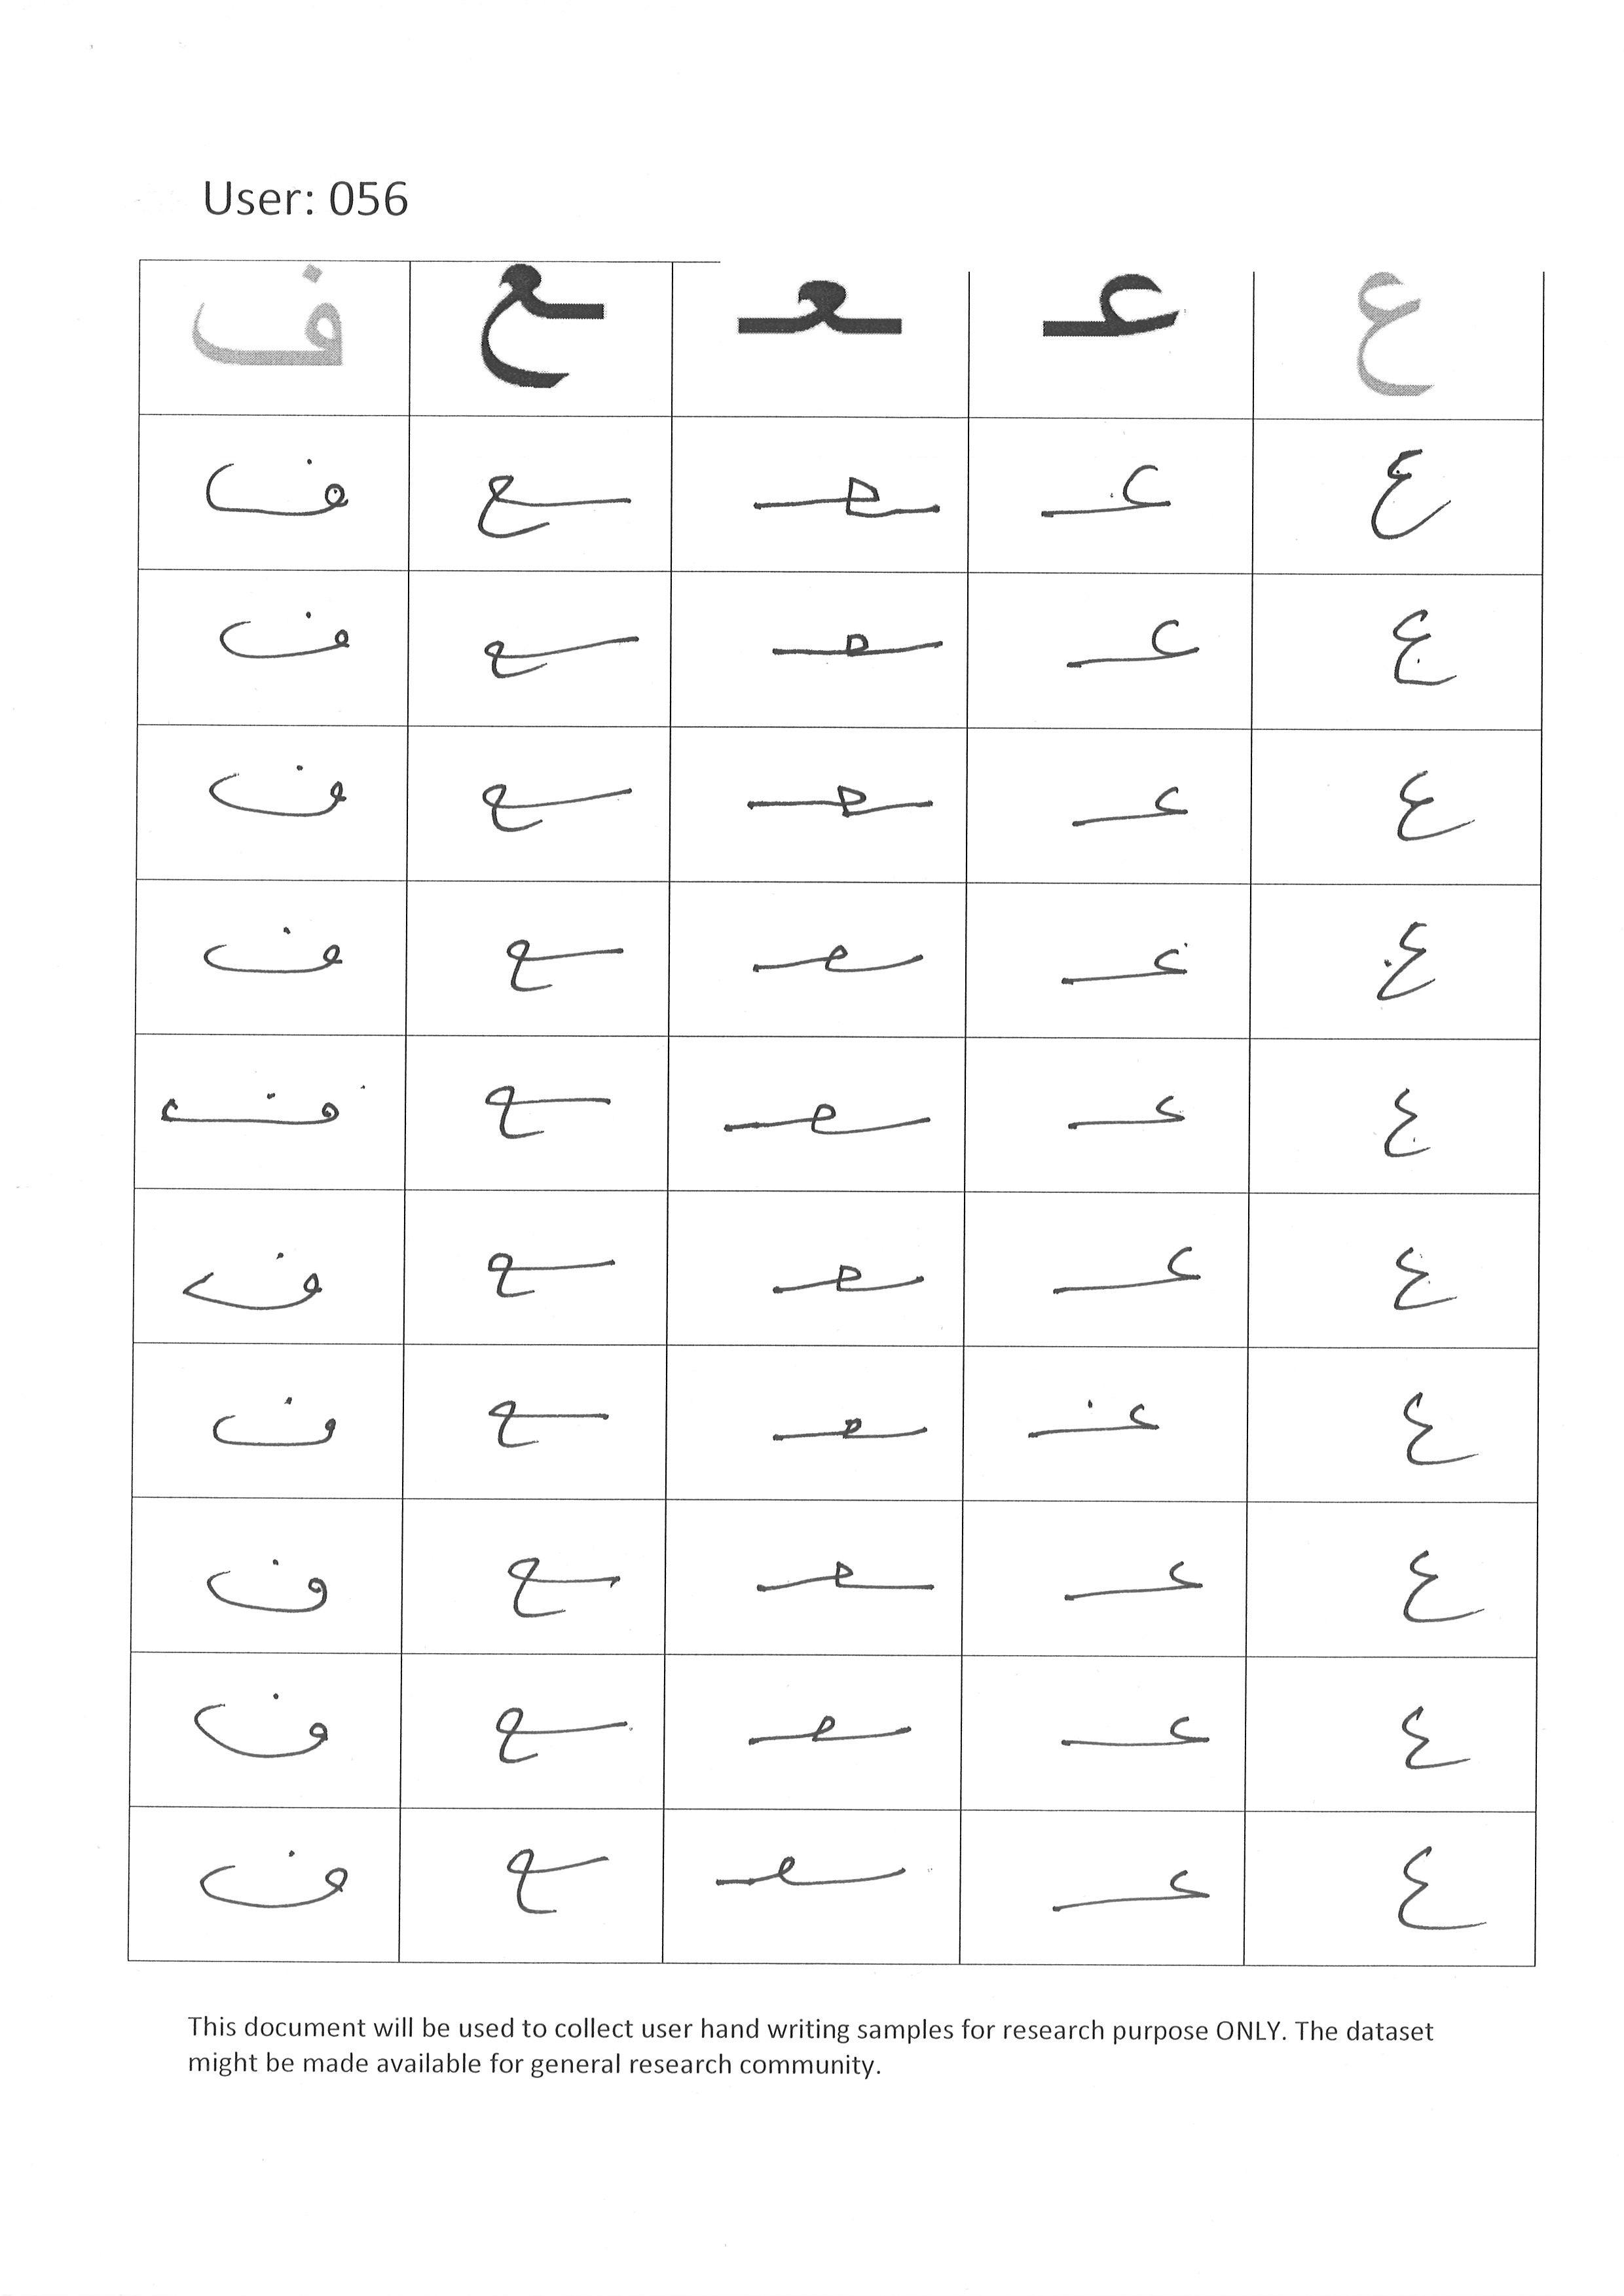 User: 056
ع عـ ـعـ ـع ف
ع عـ ـعـ ـع ف
ع عـ ـعـ ـع ف
ع عـ ـعـ ـع ف
ع عـ ـعـ ـع ف
ع عـ ـعـ ـع ف
ع عـ ـعـ ـع ف
ع عـ ـعـ ـع ف
ع عـ ـعـ ـع ف
ع عـ ـعـ ـع ف
ع عـ ـعـ ـع ف
This document will be used to collect user hand writing samples for research purpose ONLY. The dataset
might be made available for general research community.